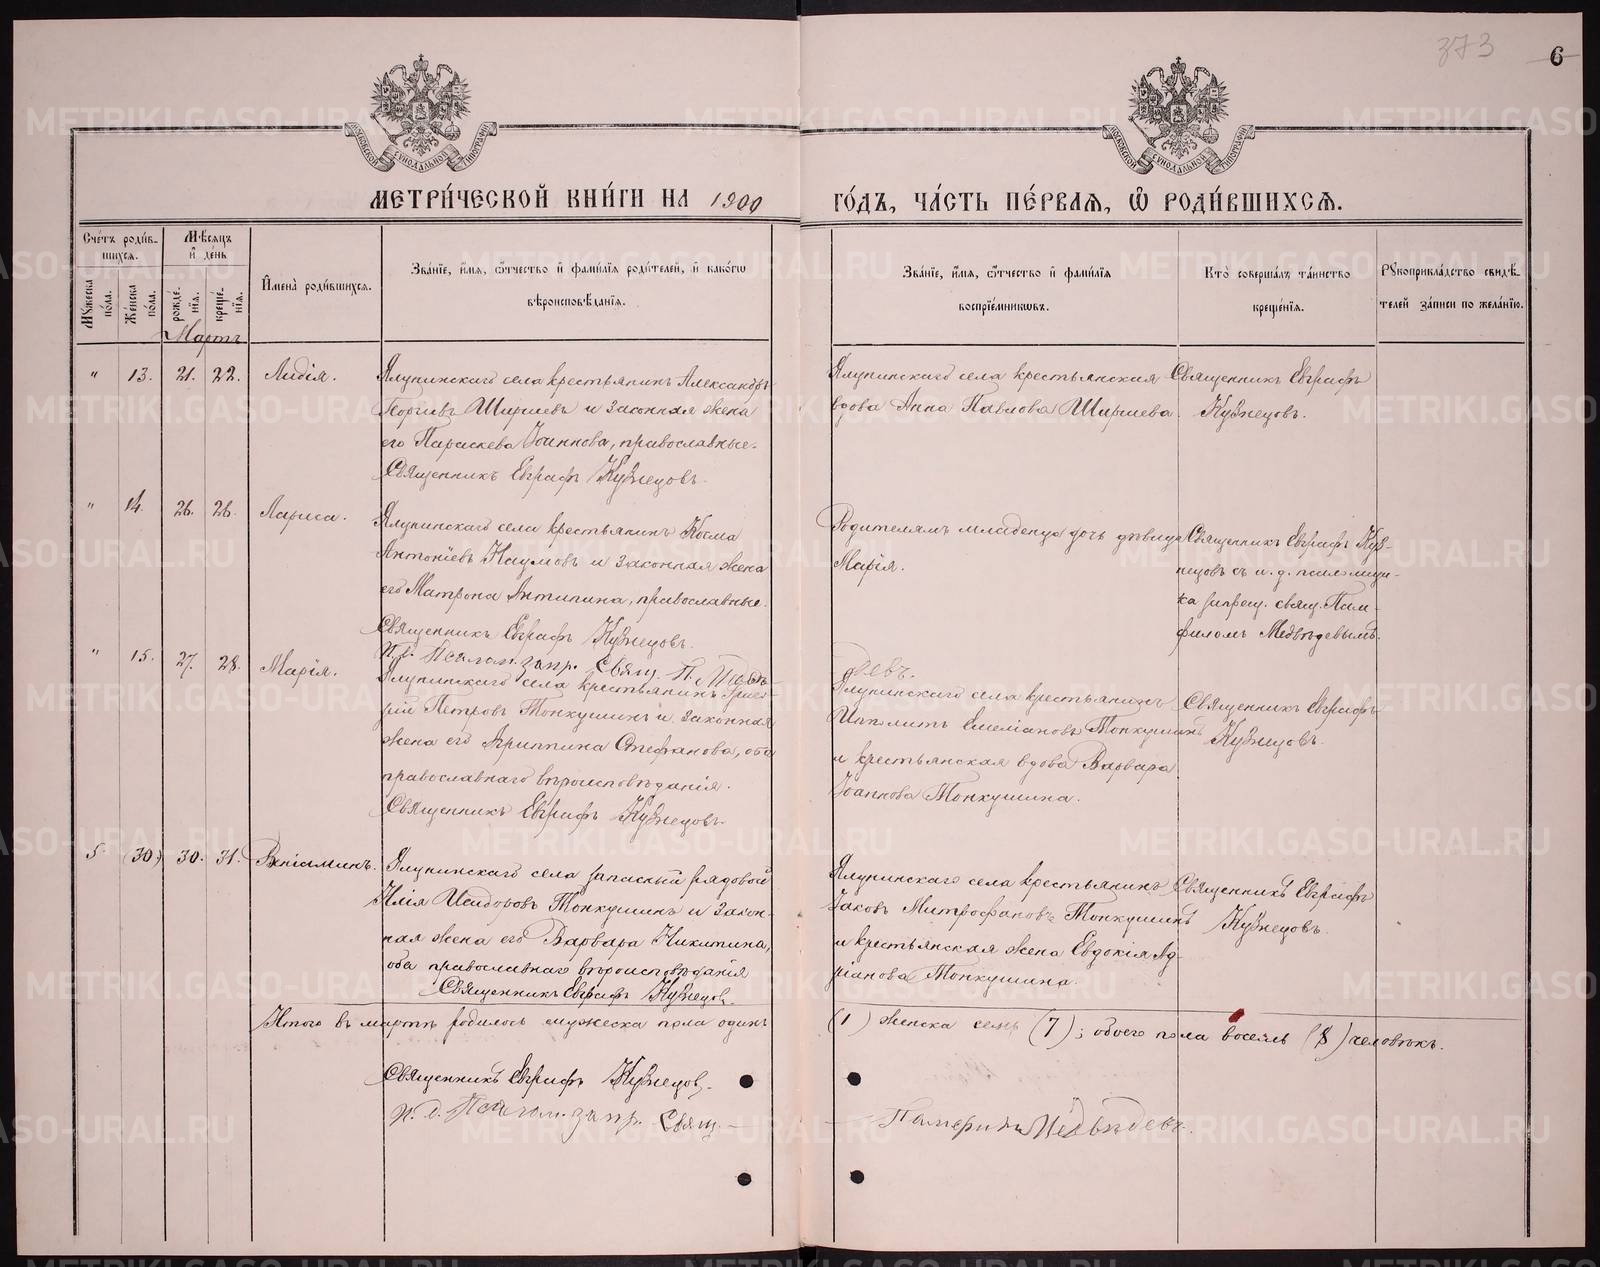 373
6
МОСКОВСКОЙ СѴНОДАЛЬНОЙ ТИПОГРАФІИ
МОСКОВСКОЙ СѴНОДАЛЬНОЙ ТИПОГРАФІИ
МЕТРИ́ЧЕСКОЙ КНИ́ГИ НА 1900 ГО́ДЪ, ЧА́СТЬ ПЕ́РВАѦ, Ѽ РОДИ́ВШИХСѦ.
Сче́тъ роди́в-
шихсѧ.
Мѣ́сѧцъ
и҆ де́нь
Мꙋ́жеска
по́ла.
Же́нска
по́ла.
рожде́-
нїѧ.
креще́-
нїѧ.
И҆мена̀ роди́вшихсѧ.
Зва́нїе, и҆́мѧ, ѻ҆́тчество и҆ фами́лїѧ роди́телей, и҆ како́гѡ
вѣроисповѣ́данїѧ.
Зва́нїе, и҆́мѧ, ѻ҆́тчество и҆ фами́лїѧ
воспрїе́мникѡвъ.
Кто̀ соверша́лъ та́инство
креще́нїѧ.
Рꙋкоприкла́дство свидѣ́-
телей за́писи по жела́нїю.
Мартъ
" 13. 21. 22. Лидія.
Ялунинскаго села крестьянинъ Александръ
Георгіевъ Ширшевъ и законная жена
его Параскева Іоаннова, православные.
Священникъ Евграфъ Кузнецовъ.
Ялунинскаго села крестьянская
вдова Анна Павлова Ширшева.
Священникъ Евграфъ
Кузнецовъ.
" 14. 26. 26. Лариса.
Ялунинскаго села крестьянинъ Косма
Антоніевъ Наумовъ и законная жена
его Матрона Антипина, православные.
Священникъ Евграфъ Кузнецовъ.
И. д. Псалом. запр. Свящ. П. Медвѣ
девъ.
Родителямъ младенца дочь дѣвица
Марія.
Священникъ Евграфъ Куз-
нецовъ съ и. д. псаломщи-
ка запрещ. свящ. Пам-
филомъ Медвѣдевымъ.
" 15. 27. 28. Марія.
Ялунинскаго села крестьянинъ Григо-
рій Петровъ Топкушинъ и законная
жена его Агриппина Стефанова, оба
православнаго вѣроисповѣданія.
Священникъ Евграфъ Кузнецовъ.
Ялунинскаго села крестьянинъ
Ипполитъ Емеліановъ Топкушинъ
и крестьянская вдова Варвара
Іоаннова Топкушина.
Священникъ Евграфъ
Кузнецовъ.
5. (30) 30. 31. Веніаминъ.
Ялунинскаго села запасный рядовой
Илія Исидоровъ Топкушинъ и закон-
ная жена его Варвара Никитина,
оба православнаго вѣроисповѣданія
Священникъ Евграфъ Кузнецов.
Ялунинскаго села крестьянинъ
Іаковъ Митрофановъ Топкушинъ
и крестьянская жена Евдокія Ад-
ріанова Топкушина.
Священникъ Евграфъ
Кузнецовъ.
Итого въ мартѣ родилось мужеска пола одинъ (1) женска семь (7); обоего пола восемь (8) человѣкъ.
Священникъ Евграфъ Кузнецов.
И. д. Псалом. запр. Свящ. — Памфилъ Медвѣдевъ.
METRIKI.GASO-URAL.RU